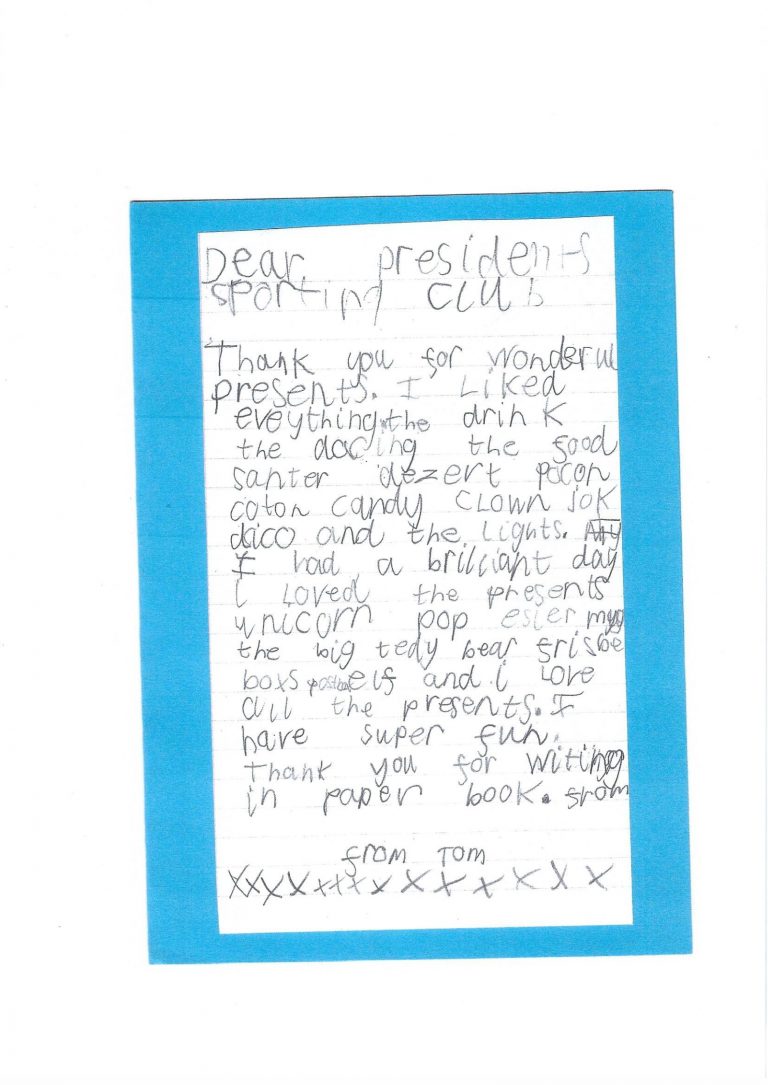 Dear presidents
sporting club
Thank you for wonderul
presents. I Liked
eveything the drink
the dacing the food
santer dezert pocon
coton candy clown jok
dico and the Lights.
I had a brilliant day
i Loved the presents
unicorn pop
the big tedy bear frisbe
boxs elf and i Love
all the presents. I
have super fun.
Thank you for writing
in paper book. from
from Tom
xxxxxxxxxxxxxx